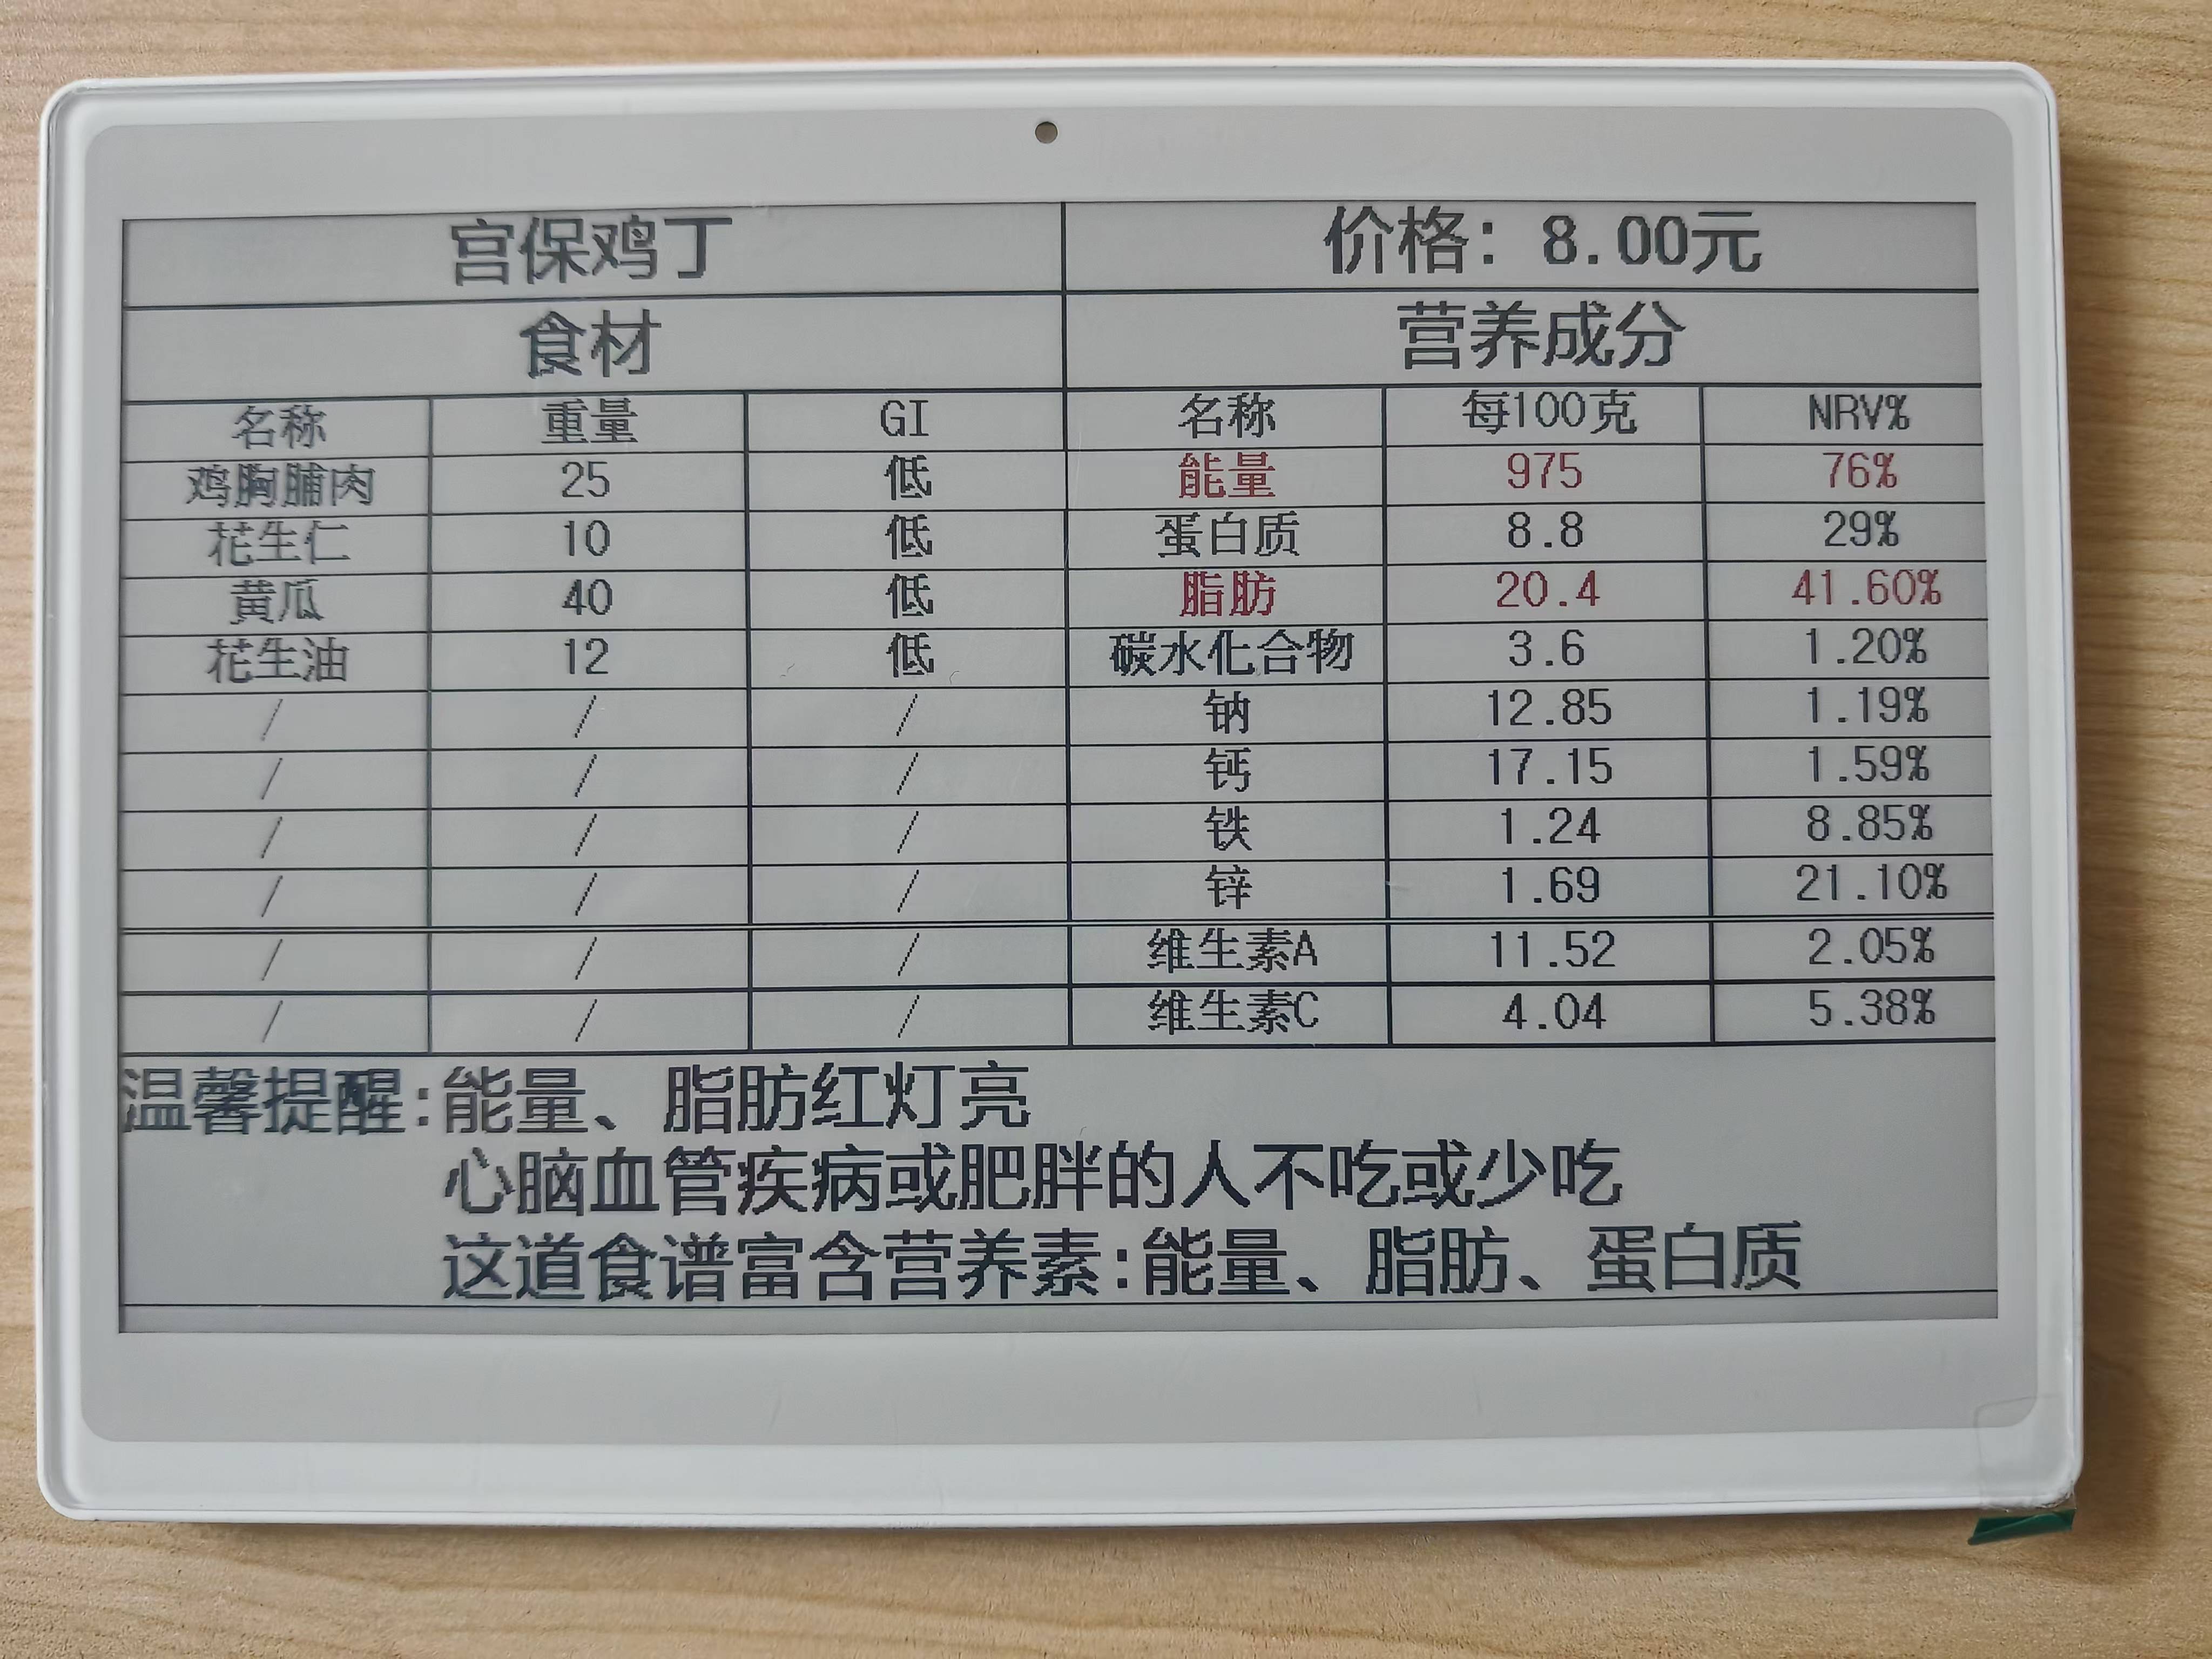 宫保鸡丁 价格：8.00元
食材 营养成分
名称 重量 GI 名称 每100克 NRV%
鸡胸脯肉 25 低 能量 975 76%
花生仁 10 低 蛋白质 8.8 29%
黄瓜 40 低 脂肪 20.4 41.60%
花生油 12 低 碳水化合物 3.6 1.20%
/ / / 钠 12.85 1.19%
/ / / 钙 17.15 1.59%
/ / / 铁 1.24 8.85%
/ / / 锌 1.69 21.10%
/ / / 维生素A 11.52 2.05%
/ / / 维生素C 4.04 5.38%
温馨提醒:能量、脂肪红灯亮
心脑血管疾病或肥胖的人不吃或少吃
这道食谱富含营养素:能量、脂肪、蛋白质